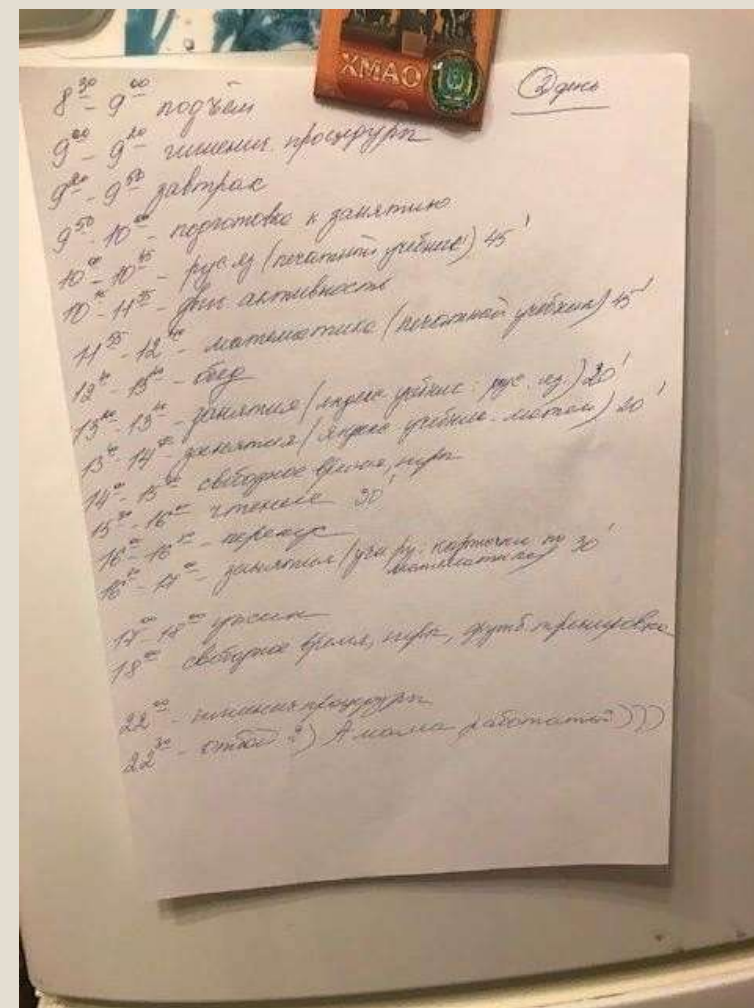 ХМАО
2 день
8³⁰ - 9⁰⁰ подъём
9⁰⁰ - 9²⁰ - гигиенич. процедуры
9²⁰ - 9⁵⁰ завтрак
9⁵⁰ - 10⁰⁰ - подготовка к занятию
10⁰⁰ - 10⁴⁵ - рус яз (печатный учебник) 45'
- двиг активность
- математика (печатной учебник) 45'
- обед
- занятия (яндекс учебник рус. яз.) 20'
занятия (яндекс учебник - матем) 20'
свободное время, игры
- 16⁰⁰ чтение 30'
- перекус
- 17⁰⁰ - занятия (учи ру. карточки по математике) 30'
17⁰⁰ - 18⁰⁰ ужин
18⁰⁰ свободное время, игры, тренировка
22⁰⁰ - гигиенич процедуры
22³⁰ - отбой А мама работать)))